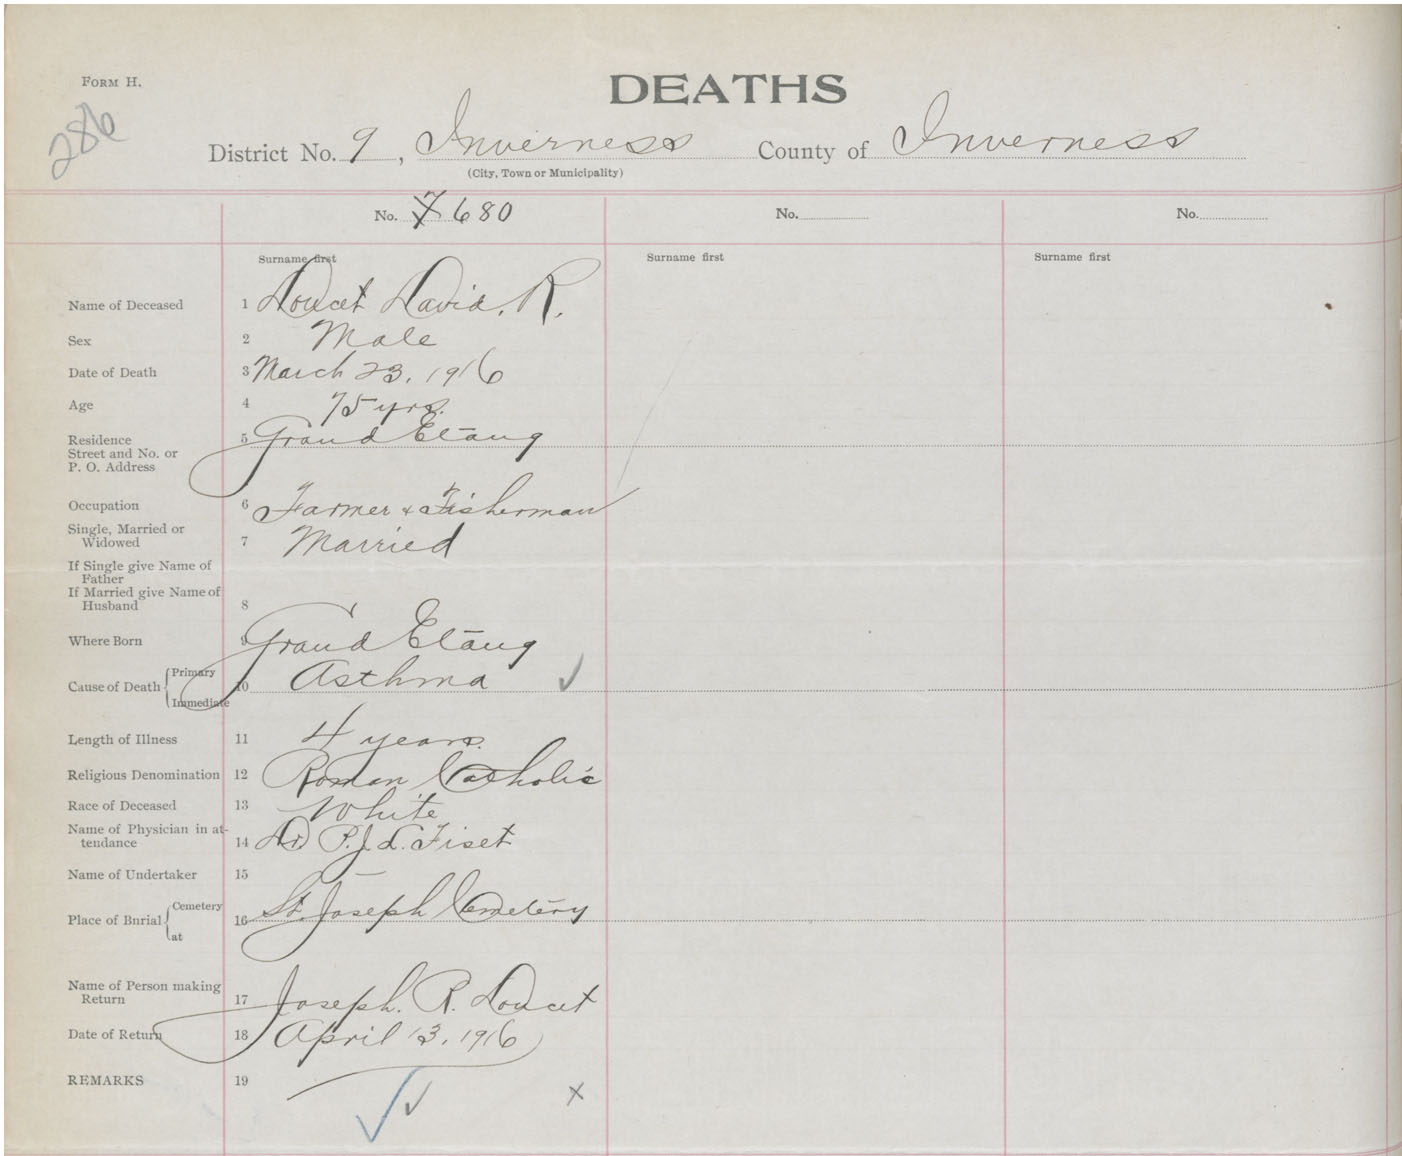 FORM H.
DEATHS
286
District No. 9, Inverness County of Inverness
(City, Town or Municipality)
No. 7 680 No. No.
Surname first Surname first Surname first
Name of Deceased 1 Doucet David. R.
Sex 2 Male
Date of Death 3 March 23, 1916
Age 4 75 yrs.
Residence 5 Grand Etang
Street and No. or
P. O. Address
Occupation 6 Farmer & Fisherman
Single, Married or
Widowed 7 Married
If Single give Name of
Father
If Married give Name of
Husband 8
Where Born 9 Grand Etang
Cause of Death Primary 10 Asthma
Immediate
Length of Illness 11 4 years.
Religious Denomination 12 Roman Catholic
Race of Deceased 13 White
Name of Physician in at-
tendance 14 Dr. P. J. L. Fiset
Name of Undertaker 15 —
Place of Bnrial Cemetery 16 St. Joseph Cemetery
at
Name of Person making
Return 17 Joseph. R. Doucet
Date of Return 18 April 13, 1916
REMARKS 19